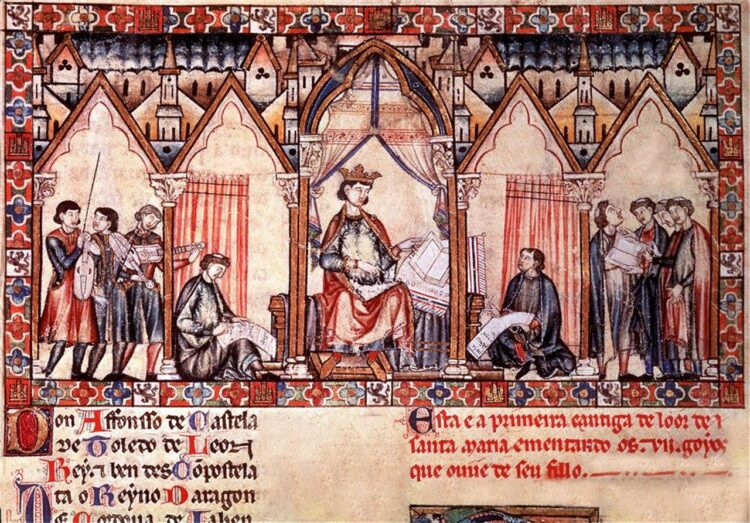 Don Affonsso de Castela
de Toledo de Leon
Rey ⁊ ben des Cõpostela
ta o Reyno Daragon
De Cordoua de Iahen
Esta e a primeira cantiga de loor de
santa maria ementando os .vii. goyos
que ouue de seu fillo.